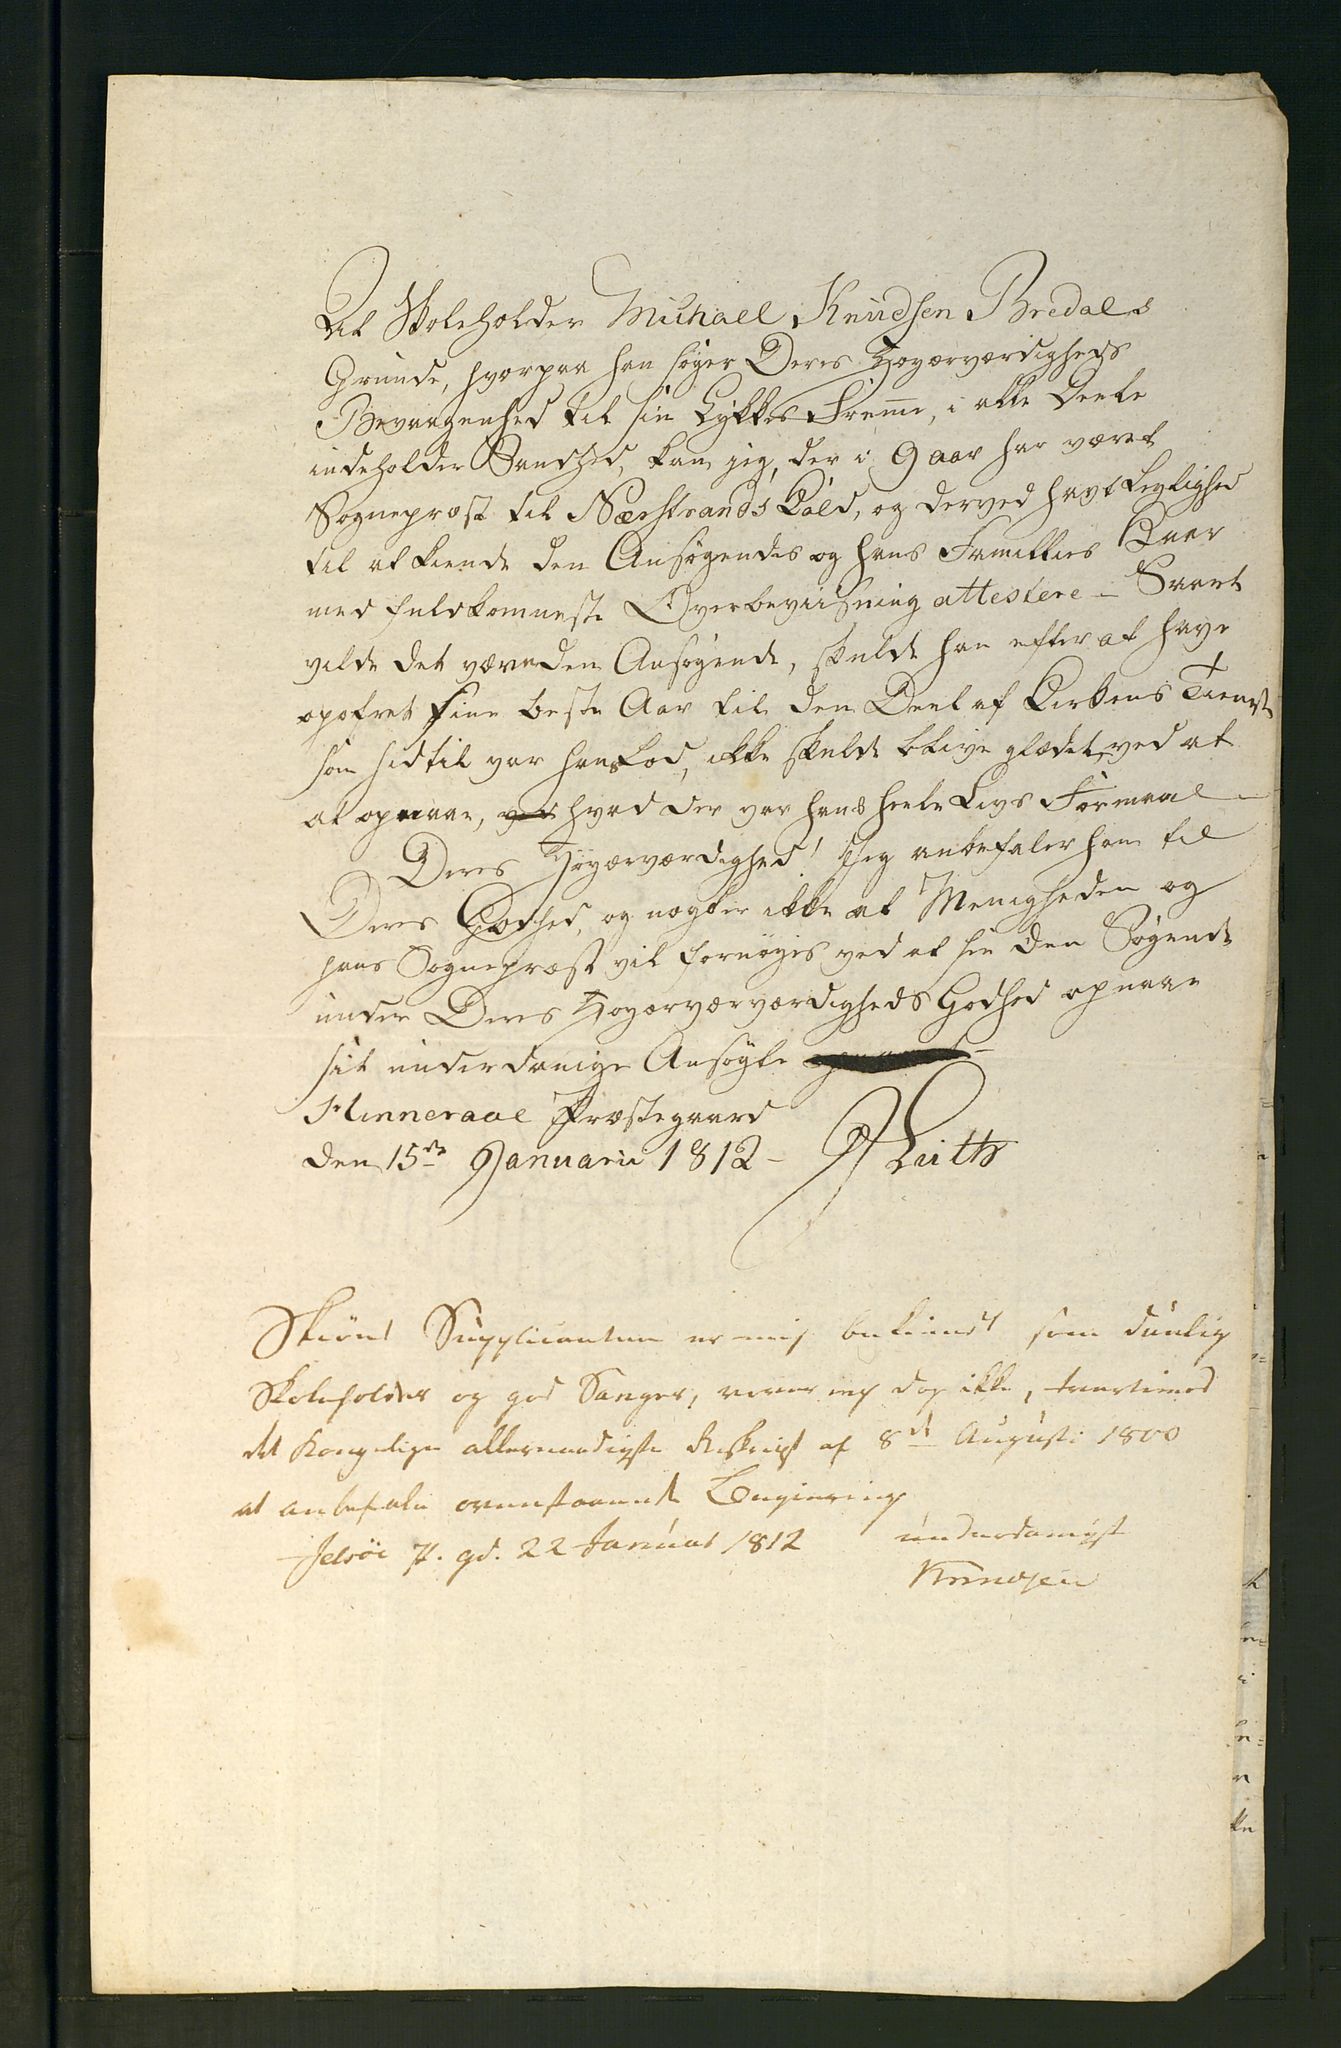 At Skoleholder Michael Knudsen Bredals
Grunde, hvorpaa han søger Deres Høyærværdigheds
Bevaagenhed til sin Lykkes Fremme, i alle Deele
indeholder Sandhed, kan jeg, der i 9 aar har været
Sognepræst til Nærstrands Kald, og derved havt Leylighed
til at kiende den Ansøgendes og hans Families Kaar
med fuldkomneste Overbeviisning attestere – Svart
vilde det være den Ansøgende, skulde han efter at have
opofret sine beste Aar til den Deel af Kirkens Tieneste
som hidtil var hans Lod, ikke skulde blive glædet ved at
at opnaae, ved hvad der var hans heele Livs Formaal –
Deres Høyærværdighed! Jeg anbefaler ham til
Deres Godhed, og nægter ikke at Menigheden og
hans Sognepræst vil fornøyes ved at see den Søgende
under Deres Høyærværværdigheds Godhed opnaae
sit underdanige Ansøgte
Hinneraae Præstegaard
den 15de Januarii 1812 –
Skiønt Supplicanten er mig bekiendt som duelig
Skoleholder og god Sanger, vover jeg dog ikke, tvertimod
det kongelige allernaadigste Reskript af 8de Augusti 1800
at anbefale ovenstaaende Begiering
Jelsøe P. gd. 22 Januar 1812 underdanigst
Knudsen